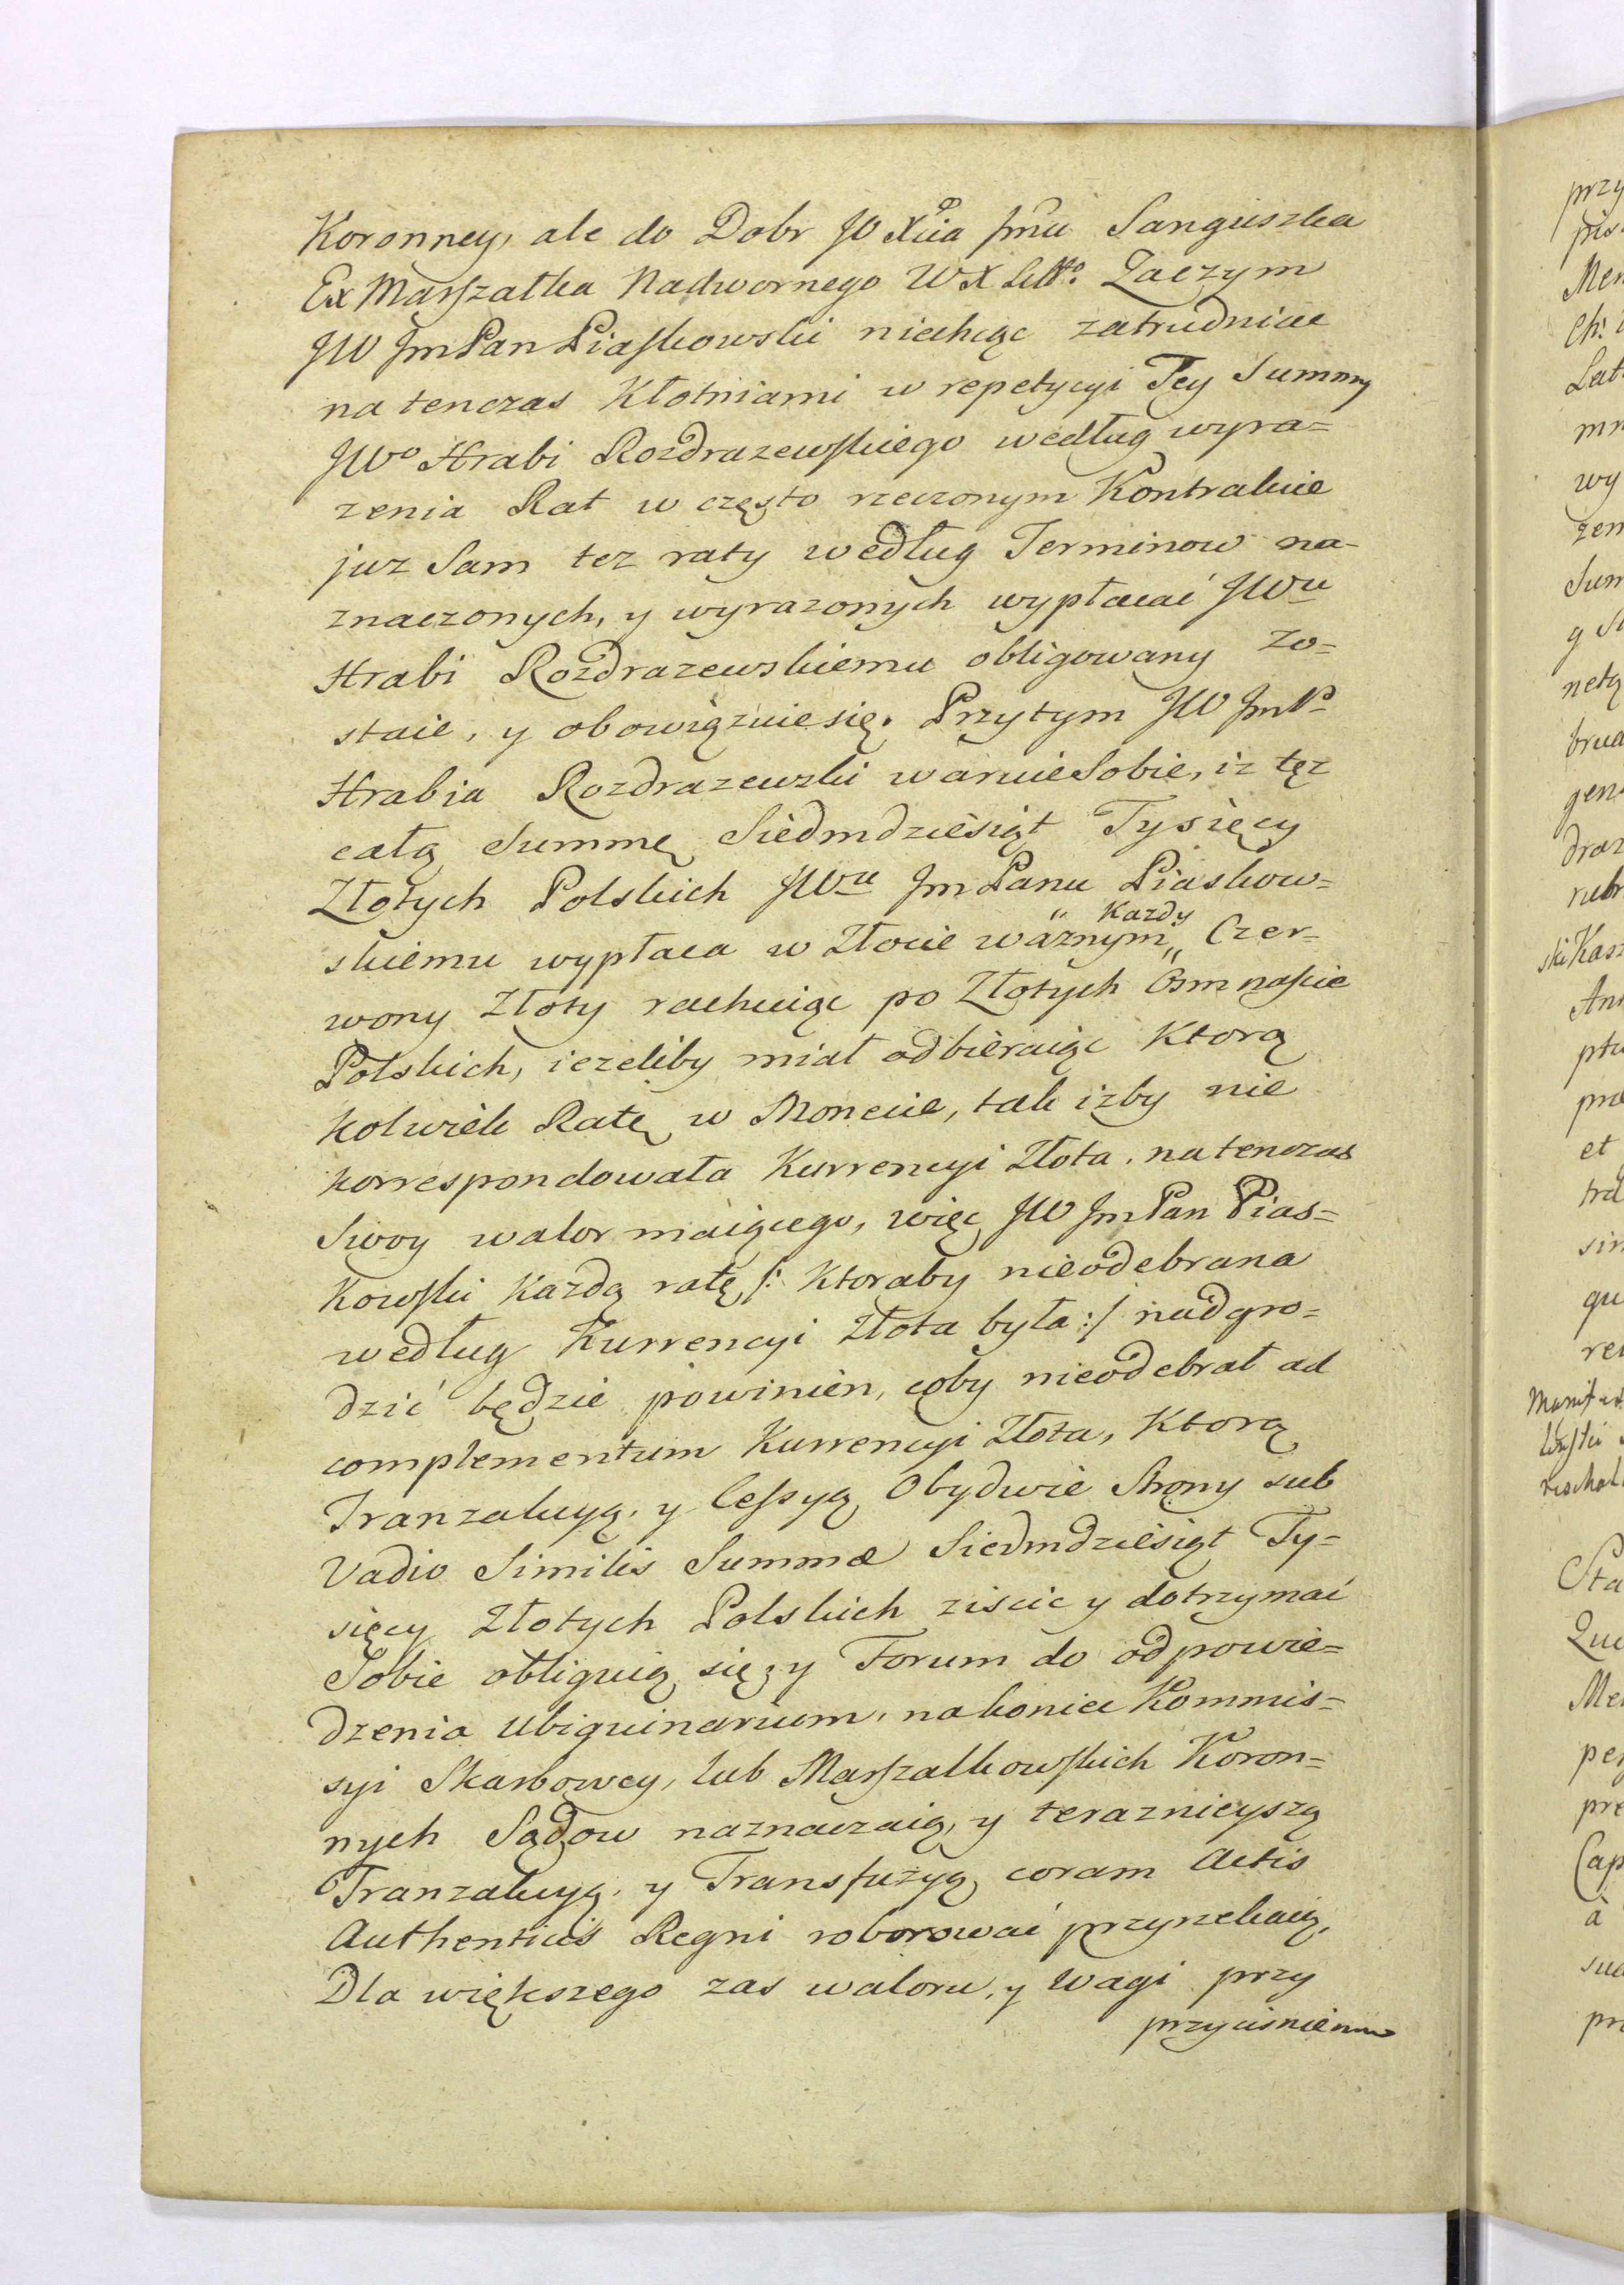 Koronney, ale do Dobr JO Xcia Jmci Sanguszka
Ex Marszałka Nadwornego WX Litt⁰. Zaczym
JW JmPan Piaskowski niechcąc zatrudniac
na tenczas Kłotniami w repetycyi Tey Summy
JWo Hrabi Rozdrazewskiego według wyra=
zenia Rat w często rzeczonym Kontrakcie
juz Sam tez raty według Terminow na-
znaczonych, y wyrazonych wypłacać JWu
Hrabi Rozdrazewskiemu obligowany zo=
staie, y obowiązuie się. Przytym JW JmP
Hrabia Rozdrazewski waruie Sobie, iz tęz
całą Summę Siedmdziesiąt Tysięcy
Złotych Polskich JWu JmPanu Piaskow=
skiemu wypłaca w Złocie ważnym „ Kazdy „ Czer=
wony Złoty rachuiąc po Złotych Osmnaście
Polskich, iezeliby miał odbieraiąc Ktorą
kolwiek Ratę w Monecie, tak izby nie
korrespondowała Kurrencyi Złota, natenczas
Swoy walor maiącego, więc JW JmPan Pias=
kowski Kazdą ratę /: Ktoraby nieodebrana
według Kurrencyi Złota była :/ nadgro=
dzić będzie powinien, coby nieodebrał ad
complementum Kurrencyi Złota, Ktorą
Tranzakcyą, y Cessyą Obydwie Strony sub
Vadio Similis Summæ Siedmdziesiąt Ty=
sięcy Złotych Polskich ziscic y dotrzymać
Sobie obliguią się, y Forum do odpowie=
dzenia Ubiquinarium, nakoniec Kommis=
syi Skarbowey, lub Marszałkowskich Koron=
nych Sądow naznaczaią, y teraznieyszą
Tranzakcyą, y Transfuzyą coram Actis
Authenticis Regni roborować przyrzekaią,
Dla większego zas waloru, y wagi przy
przycisnieniu